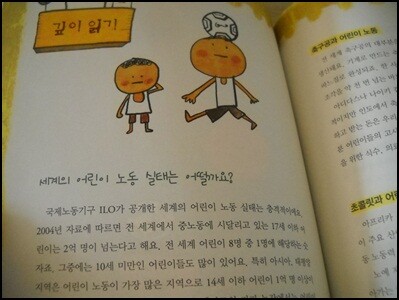 깊이 읽기
세계의 어린이 노동 실태는 어떨까요?
국제노동기구 ILO가 공개한 세계의 어린이 노동 실태는 충격적이에요.
2004년 자료에 따르면 전 세계에서 중노동에 시달리고 있는 17세 이하 어
린이는 2억 명이 넘는다고 해요. 전 세계 어린이 8명 중 1명에 해당하는 숫
자죠. 그중에는 10세 미만인 어린이들도 많이 있어요. 특히 아시아, 태평양
지역은 어린이 노동이 가장 많은 지역으로 14세 이하 어린이 1억 명 이상이
축구공과 어린이 노동
전 세계 축구공의 대부분
하고 받는 돈은 우리
본 어린이들의 고사
을 위한 식수, 의료
초콜릿과 어린이
아프리카
이 주요 산